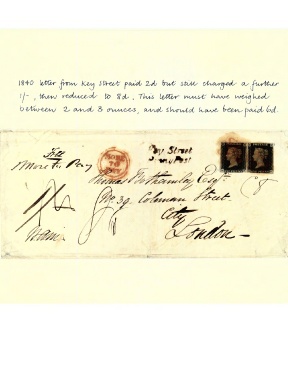 1840 letter from Key Street paid 2d but still charged a further
1/-, then reduced to 8d. This letter must have weighed
between 2 and 3 ounces, and should have been paid 6d.
Key Street
Penny Post
More to Pay
Thomas Esqr
No 39 Coleman Street
City
London
8